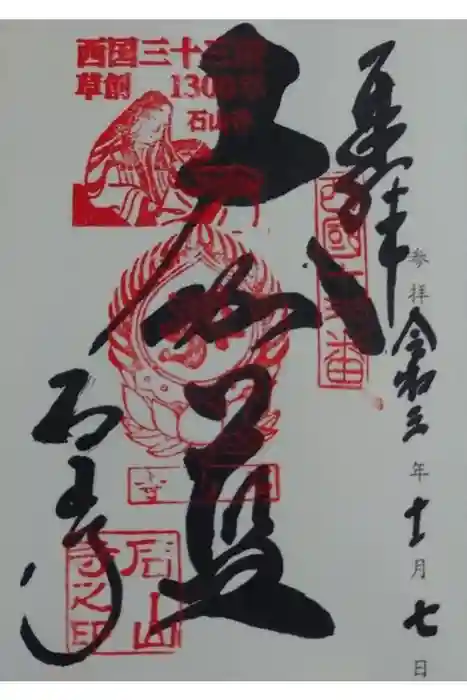 西国三十三所
草創 1300年
石山寺
奉拝
西國十三番
参拝 令和三年十一月七日
大伽藍
石山寺
石山寺之印